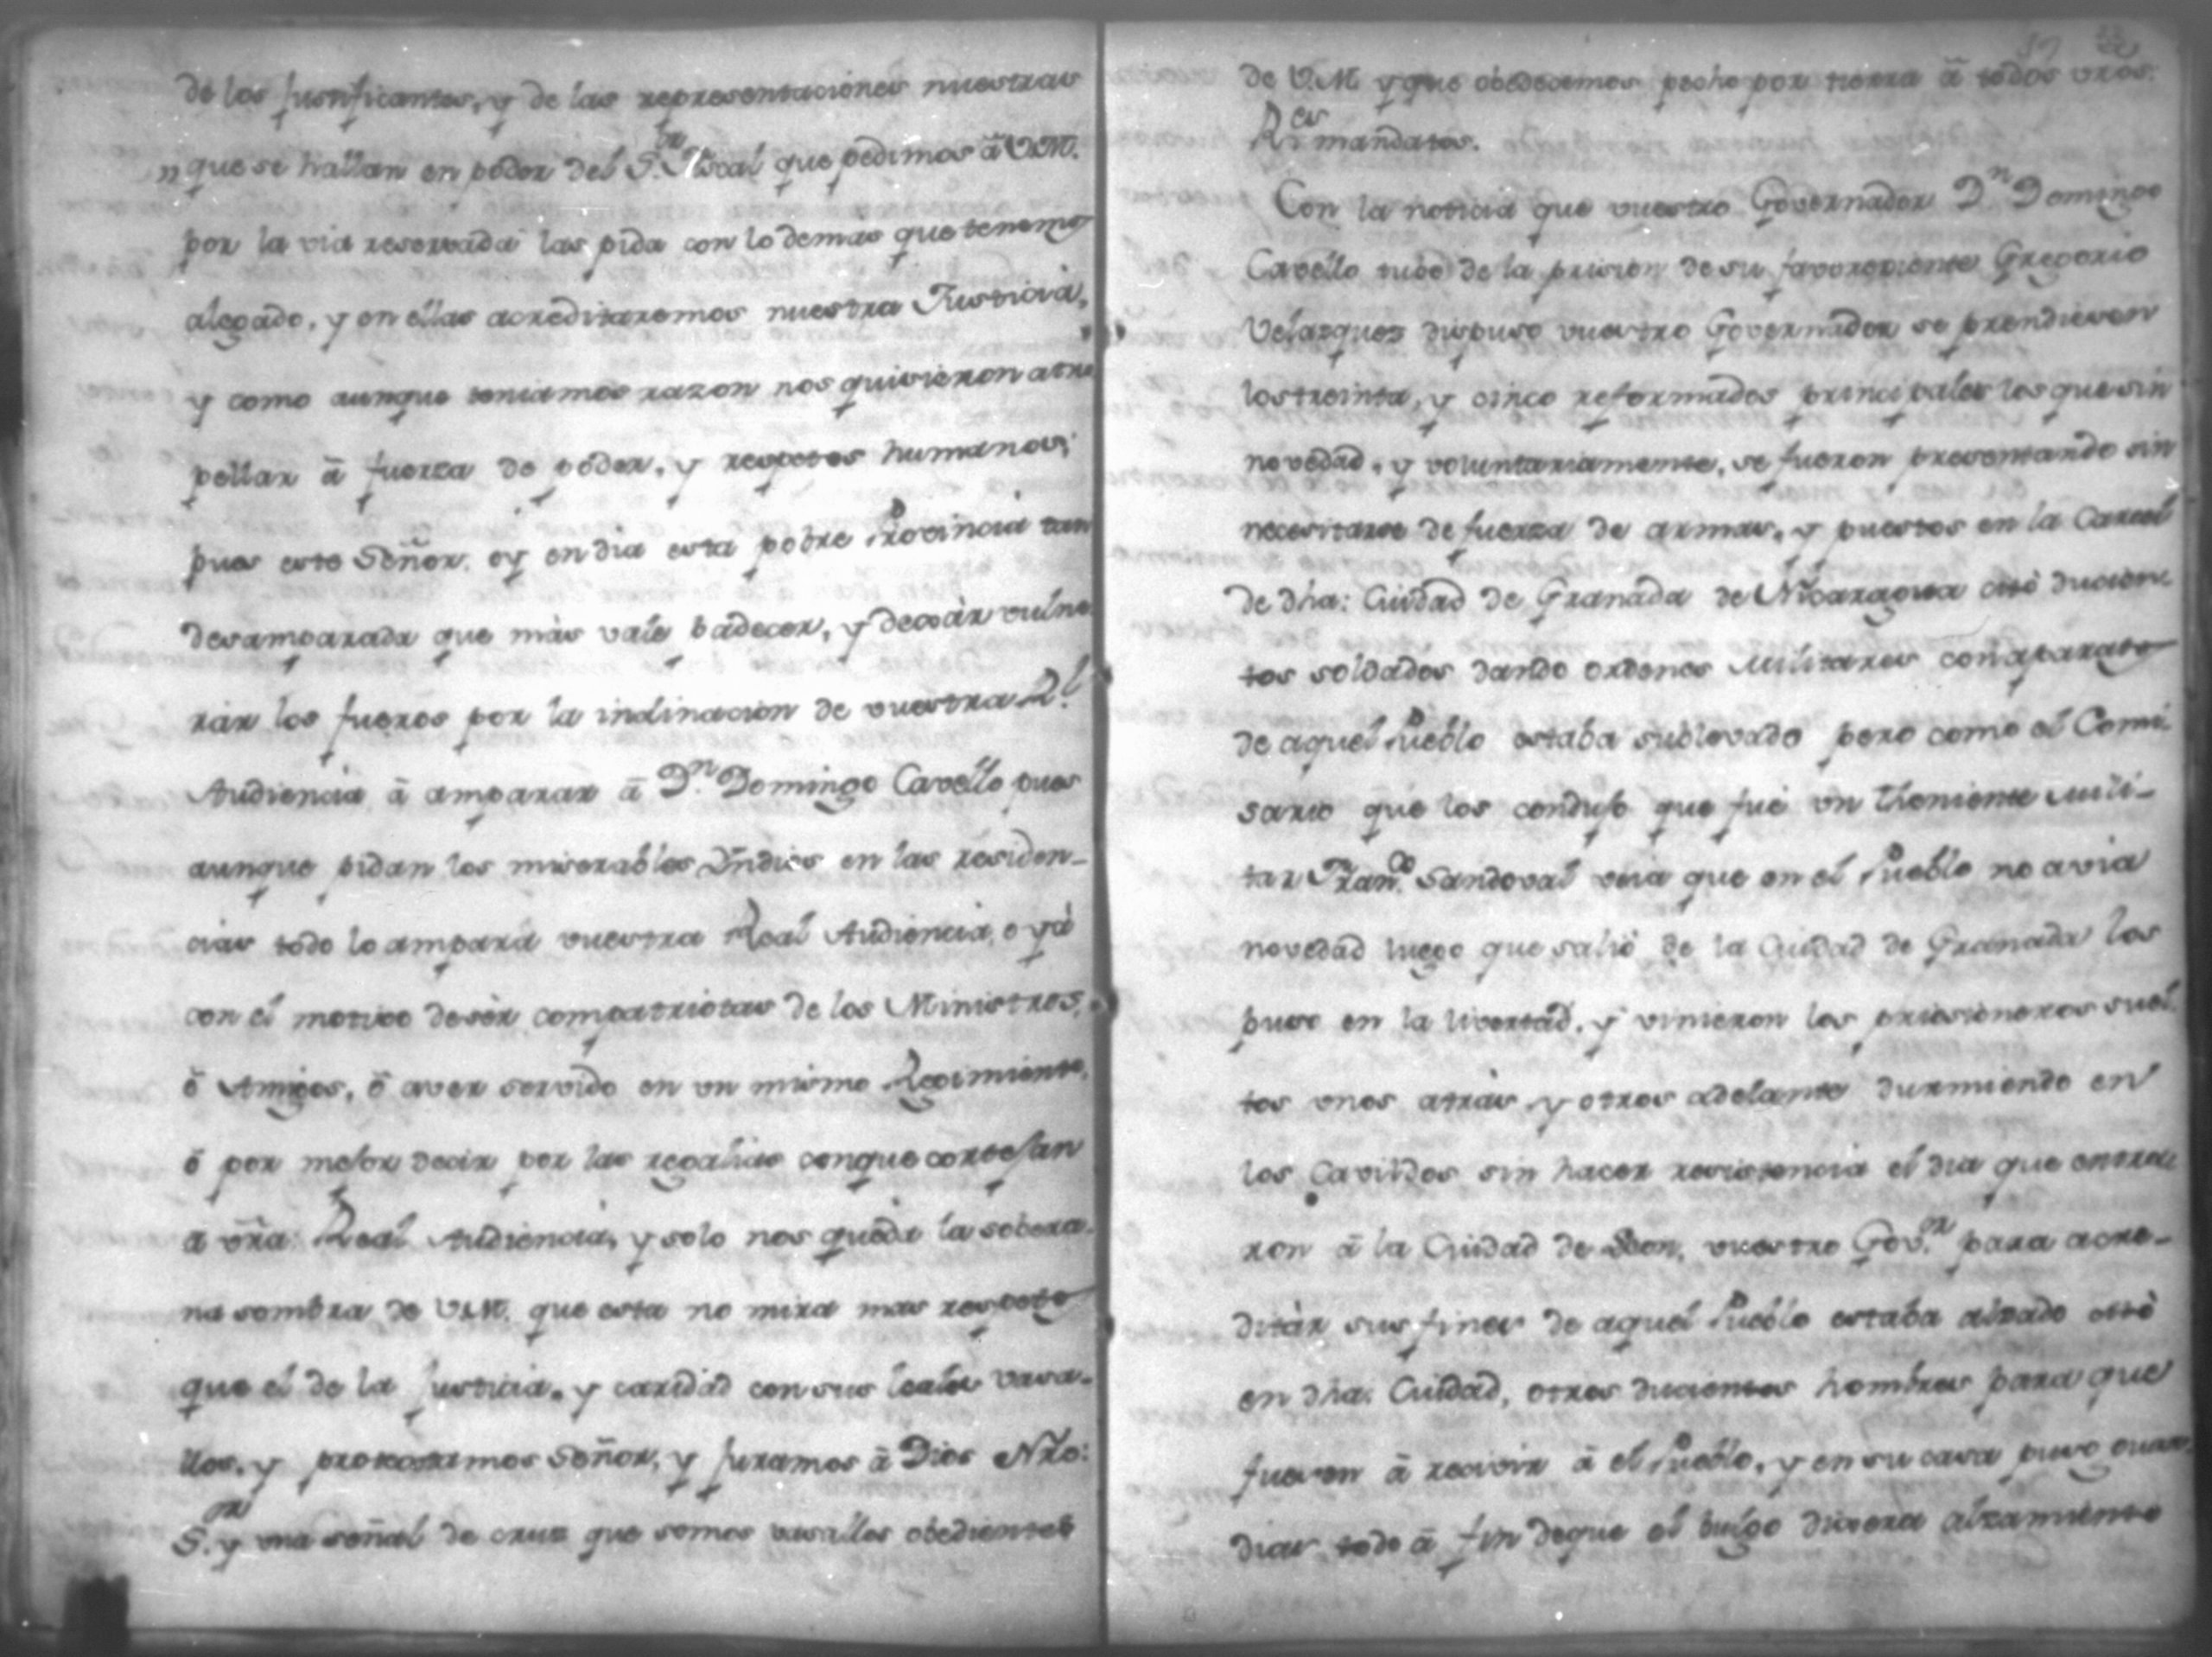 de los justificantes, y de las representaciones nuestras
„ que se hallan en poder del S.or Fiscal que pedimos â V.M.
por la via reservada las pida con lo demas que tenemos
alegado, y en ellas acreditaremos nuestra Justicia,
y como aunque teniamos razon nos quisieron atro
pellar â fuerza de poder, y respetos humanos;
pues este Señor, oy en dia esta pobre Provincia tan
desamparada que màs vale padecer, y dexàr vulne
ràr los fueros por la inclinacion de vuestra R.l
Audiencia â amparar â D.n Domingo Cavello pues
aunque pidan los miserables Yndios en las residen-
cias todo lo ampara vuestra Real Audiencia, o yà
con el motivo de sèr compatriotas de los Ministros,
ô Amigos, ô aver servido en un mismo Regimiento,
ô por mejor decir por las regalias conque cortejan
a vrã: Real Audiencia, y solo nos queda la sobera-
na sombra de V.M. que esta no mira mas respeto
que el de la justicia, y caridad con sus leales vasa-
llos, y protestamos Señor, y juramos â Dios Nrõ:
S.or y una señal de cruz que somos vasallos obedientes
57
de V.M y que obedecemos pecho por tierra â todos vros.
R.es mandatos.
Con la noticia que vuestro Governador D.n Domingo
Cavello tubo de la prision de su favoreciente Gregorio
Velazquez dispuso vuestro Governador se prendiesen
los treinta, y cinco reformados principales los que sin
novedad, y voluntariamente, se fueron presentando sin
necesitarse de fuerza de armas, y puestos en la Carcel
de dha: Ciudad de Granada de Nicaragua citò ducien
tos soldados dando ordenes militares con aparato
de aquel Pueblo estaba sublevado pero como el Comi-
sario que los condujo que fuè un Theniente mili-
tar Fran.co Sandoval veia que en el Pueblo no avia
novedad luego que saliò de la Ciudad de Granada los
puso en la livertad, y vinieron los pricsioneros suel
tos unos atràs, y otros adelante durmiendo en
los Cavildos sin hacer resistencia el dia que entra
ron â la Ciudad de Leon, vuestro Gov.or para acre-
ditàr sus fines de aquel Pueblo estaba alzado citò
en dha: Ciudad, otros ducientos hombres para que
fuesen â recivir â el Pueblo, y en su casa puso guar
dias todo â fin deque el bulgo dixera alzamiento